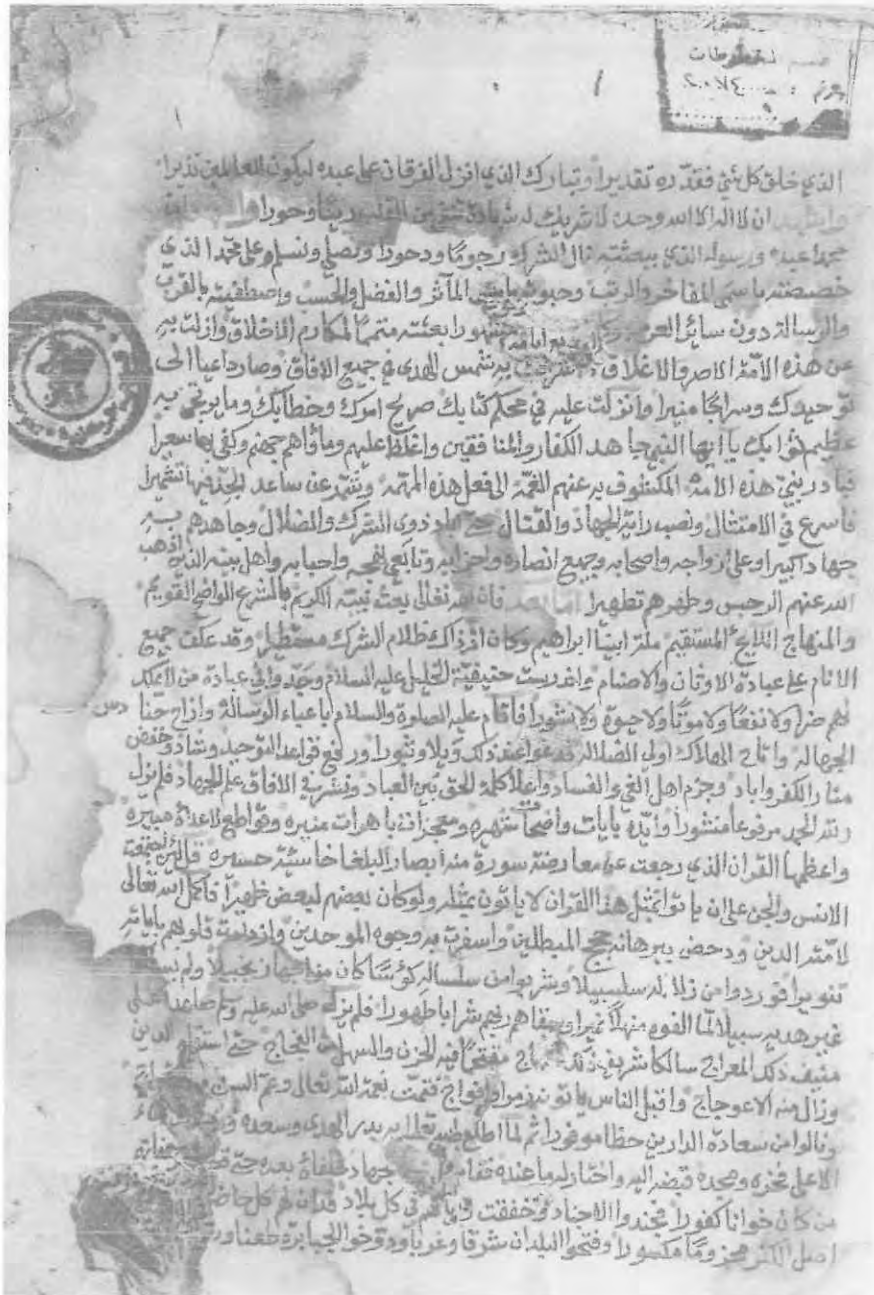 قسم المخطوطات
الذي خلق كل شئ فقدره تقديرا وتبارك الذي انزل الفرقان على عبده ليكون للعالمين نذيرا
ان لا اله الا الله وحده لا شريك له شهادة القلب وحورا
عبده ورسوله الذي ببعثته نال الشرك رجوما ودحورا ونصلي ونسلم على محمد الذي
خصصته باسمى المفاخر والرتب وحبوته المآثر والفضل والحسب واصطفيته بالقرب
والرسالة دون ساير العرب بعثته متمما لمكارم الاخلاق وازلت به
عن هذه الامة الاصر والاغلاق به شمس الهدى في جميع الافاق وصار داعيا الى
توحيدك وسراجا منيرا وانزلت عليه في محكم كتابك صريح امرك وخطابك وما يرتجي به
عظيم ثوابك يا ايها النبي جاهد الكفار والمنافقين واغلظ عليهم ومأواهم جهنم وكفى بها سعيرا
فبادر نبي هذه الامة المكشوف به عنهم الغمة الى فعل هذه المهمة وشمر عن ساعد الجد فيها تشميرا
فاسرع في الامتثال ونصب راية الجهاد والقتال ذوي الشرك والضلال وجاهدهم به
جهادا كبيرا وعلى ازواجه واصحابه وجميع انصاره واحزابه وتابعي نهجه واحبابه واهل بيته الذين اذهب
الله عنهم الرجس وطهرهم تطهيرا اما بعد فان الله تعالى بعث نبيه الكريم بالشرع الواضح القويم
والمنهاج اللايح المستقيم ملة ابينا ابراهيم وكان اذ ذاك ظلام الشرك وقد عكف جميع
الانام على عبادة الاوثان والاصنام واندرست حنيفية الخليل عليه السلام وجدوا في عبادة من لا يملك
لهم ضرا ولا نفعا ولا موتا ولا حيوة ولا نشورا فاقام عليه الصلوة والسلام باعباء الرسالة وازاح حنادس
الجهالة واتاح الهلاك اولي الضلالة فدعوا عند ذلك ويلا وثبورا ورفع قواعد التوحيد وشاد وخفض
منار الكفر واباد وجزم اهل الغي والفساد واعلا كلمة الحق بين العباد ونشر في الافاق علم الجهاد فلم يزل
مرفوعا منشورا وايده بايات واضحات شهيره ومعجزات باهرات منيره وقواطع لاعدائه مبيره
واعظمها القران الذي رجعت عن معارضة سورة منه ابصار البلغا خاسئة حسيره قل لئن اجتمعت
الانس والجن على ان ياتوا بمثل هذا القران لا ياتون بمثله ولو كان بعضهم لبعض ظهيرا فاكمل الله تعالى
لامته الدين ودحض ببرهانه حجج المبطلين واسفرت به وجوه الموحدين وازدادت قلوبهم باياته
تنويرا فوردوا من زلاله سلسبيلا وشربوا من سلساله كؤسا كان مزاجها زنجبيلا ولم
غير هديه سبيلا لما الفوه منهلا نميرا وسقاهم ربهم شرابا طهورا فلم يزل صلى الله عليه وسلم صاعدا على
منيف ذلك المعراج سالكا شريف ذلك فيه الحزن والسهل الفجاج حتى استقام الدين
وزال منه الاعوجاج واقبل الناس ياتونه زمرا وافواج فتمت نعمة الله تعالى وعم
ونالوا من سعادة الدارين حظا موفورا ثم لما اطلع بدر الهدى وسعده
الاعلى فخره ومجده قبضه اليه واختار له ما عنده فقام جهاد خلفاؤه بعده حتى
من كان خوانا كفورا فجندوا الاجناد فخفقت في كل بلاد كل
اصل الكفر مجزوما مكسورا وفتحوا البلدان شرقا وغربا ودوخوا الجبابرة طعنا